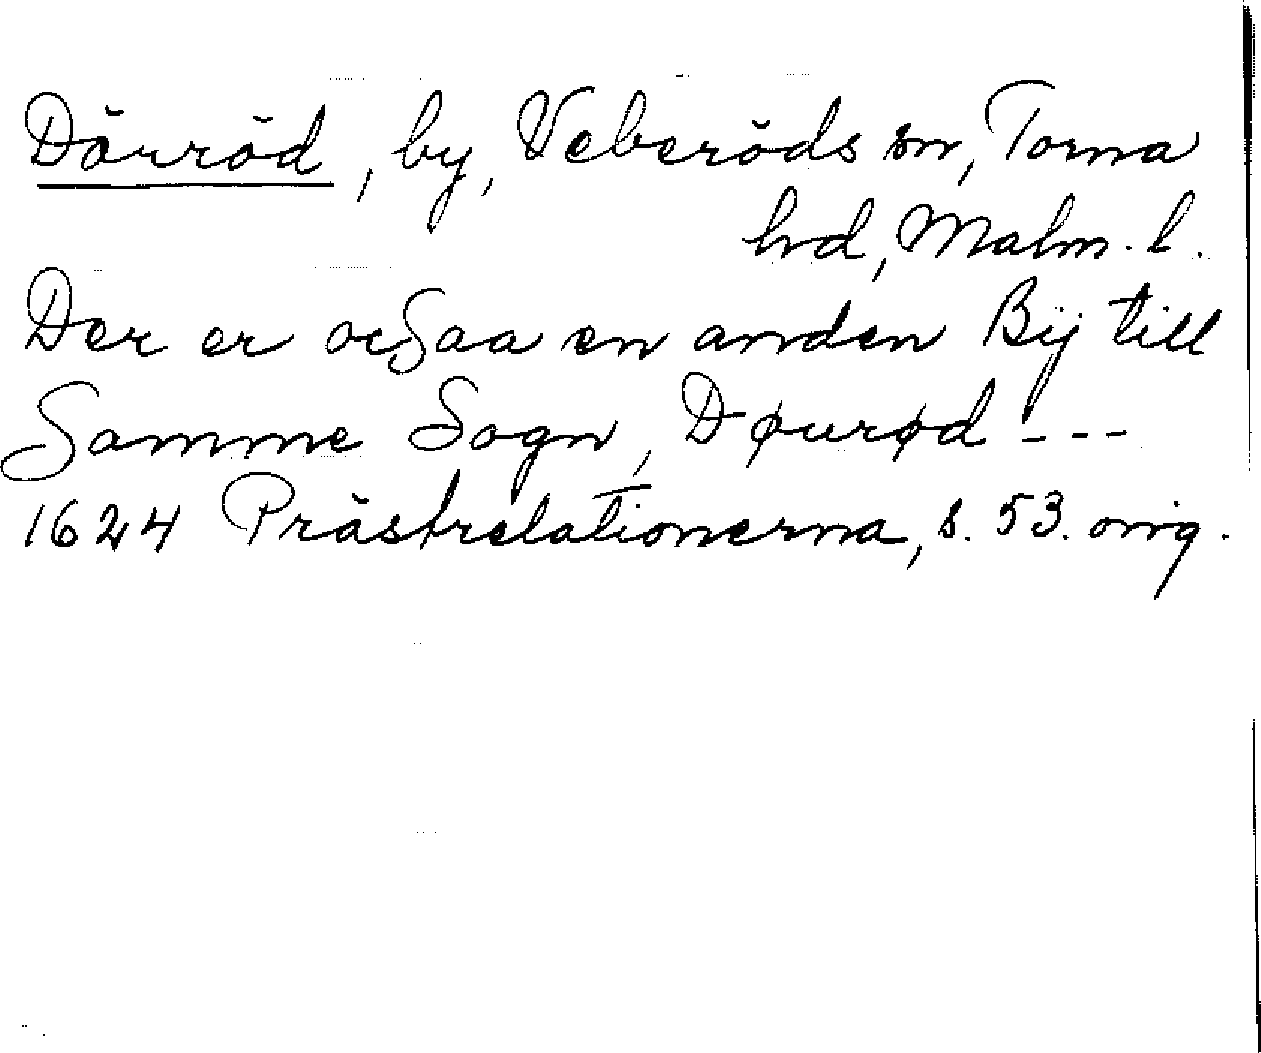 Dörröd, by, Veberöds sn, Torna
hd, Malm. l.
Der er ocsaa en anden Bÿ till
Samme Sogn, Døurød ---
1624 Prästrelationerna, s. 53. orig.